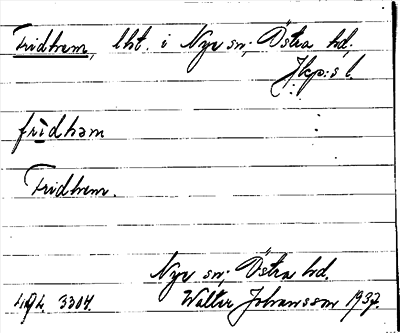 Fridhem, lht. i Nye sn; Östra hd,
Jkp:s l.
fridhäm
Fridhem.
Nye sn; Östra hd.
494. 3304. Walter Johansson 1937.